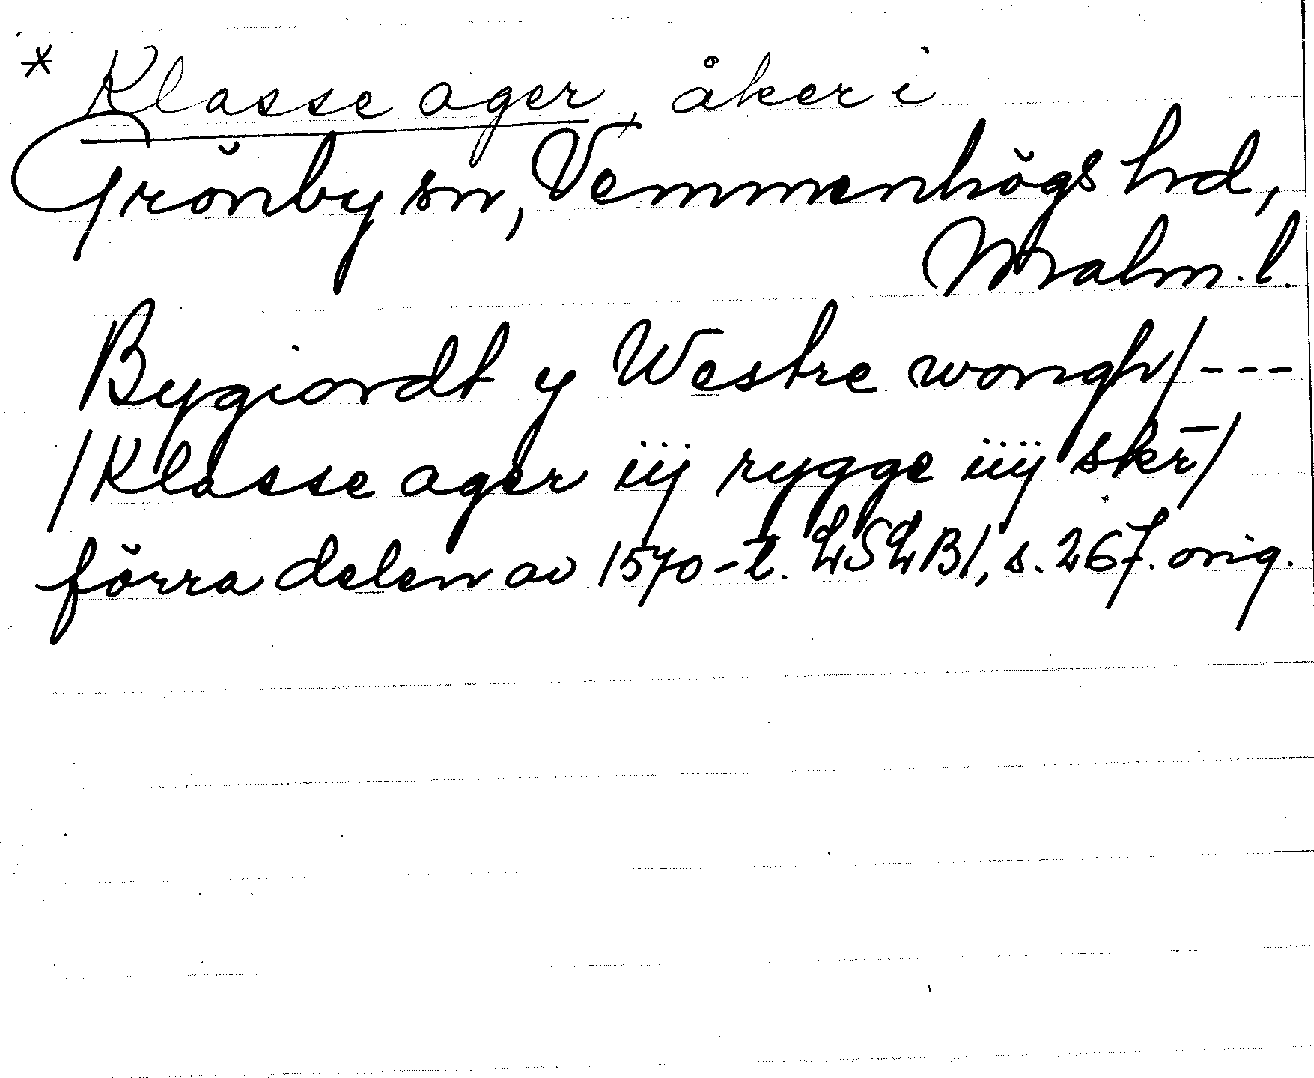 * Klasse ager, åker i
Grönby sn, Vemmenhögs hd,
Malm. l.
Bygiordt y Westre wongh/---
/Klasse ager iij rygge iiij skr̄/
förra delen av 1570-t. LSLB1, s. 267. orig.